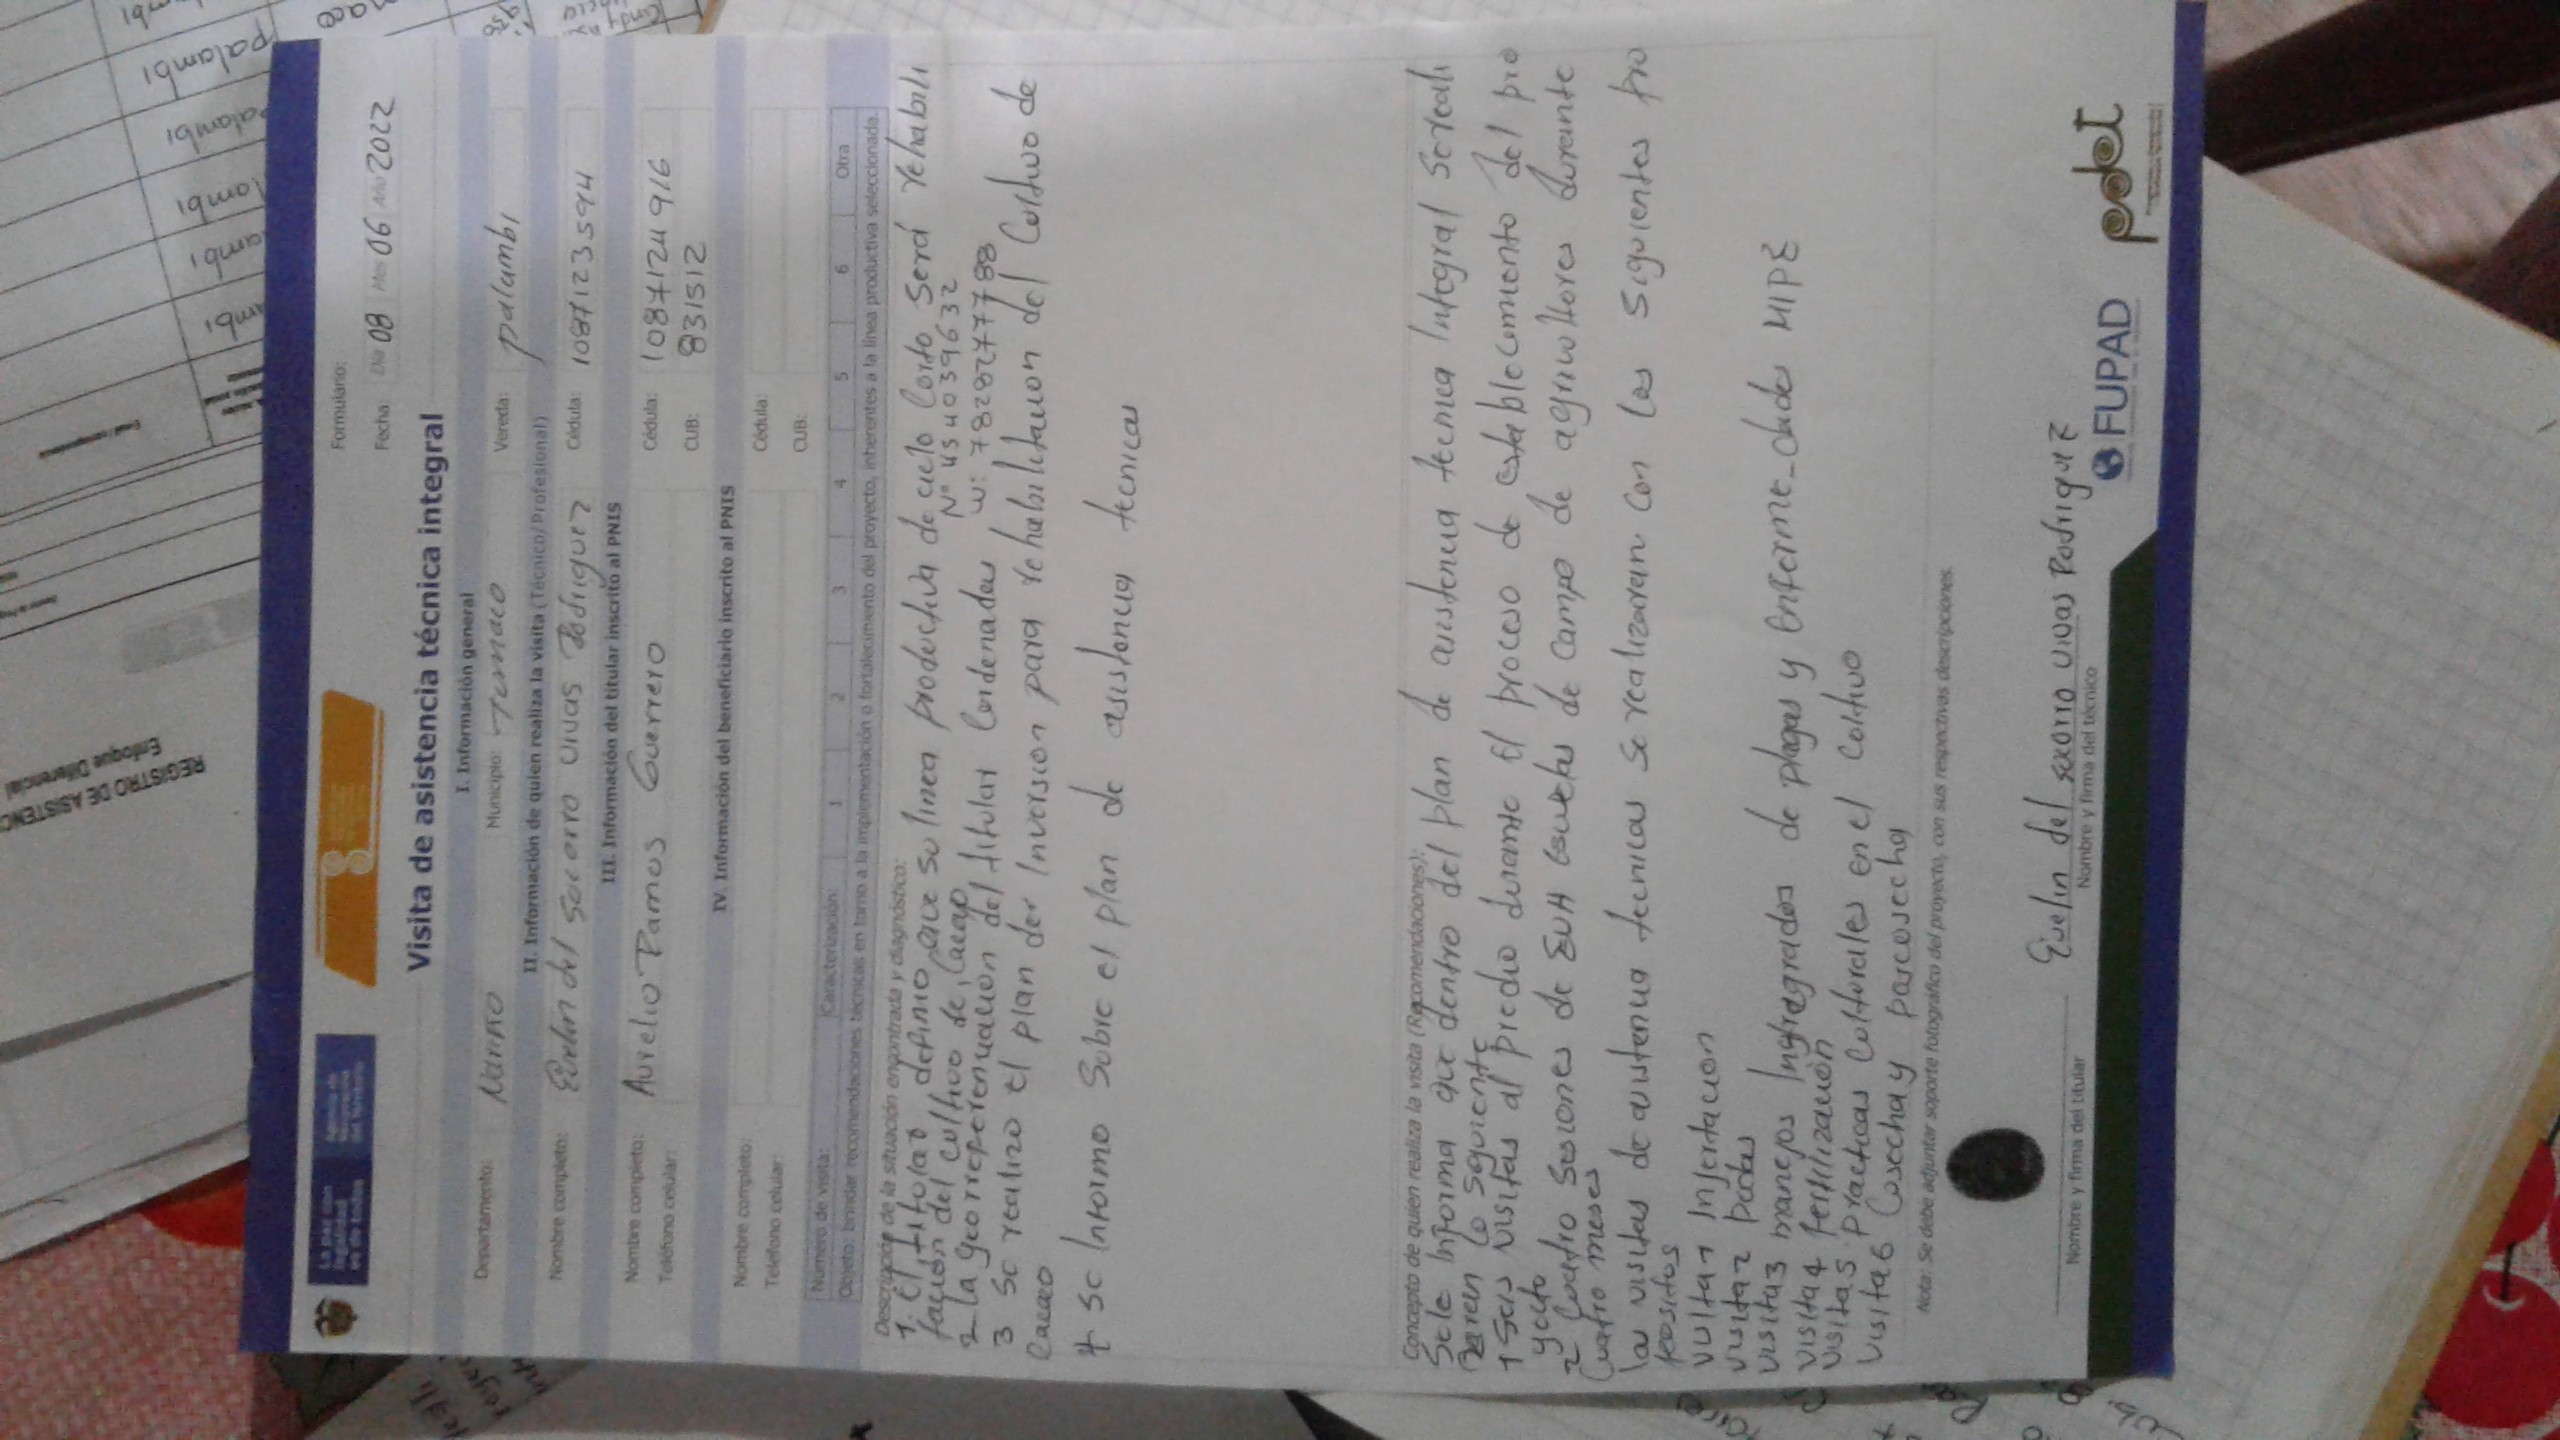 La paz con
legalidad
es de todos
Agencia de
Renovación
del Territorio
Formulario:
Fecha: Día 08 Mes 06 Año 2022
Visita de asistencia técnica integral
I. Información general
Departamento: Nariño Municipio: Tumaco Vereda: palambi
II. Información de quien realiza la visita (Técnico/Profesional)
Nombre completo: Evelin del socorro vivas Rodriguez Cédula: 1087123594
III. Información del titular inscrito al PNIS
Nombre completo: Aurelio Ramos Guerrero Cédula: 1087124916
Teléfono celular: CUB: 831512
IV. Información del beneficiario inscrito al PNIS
Nombre completo: Cédula:
Teléfono celular: CUB:
Número de visita: Caracterización: 1 2 3 4 5 6 Otra
Objeto: brindar recomendaciones técnicas en torno a la implementación o fortalecimiento del proyecto, inherentes a la línea productiva seleccionada.
Descripción de la situación encontrada y diagnóstico:
1. El titular definio que su linea productiva de ciclo Corto Será rehabili
tacion del cultivo de Cacao N° 454039632
2 la georreferenciacion del titular Cordenadas W: 7828277788
3 se realizo el plan der Inversion para rehabilitacion del Cultivo de
Cacao
4 se Informo Sobre el plan de asistencia tecnicas
Concepto de quien realiza la visita (Recomendaciones):
Se le Informa que dentro del plan de asistencia tecnica Integral Se reali
zaren lo siguiente
1 Seis visitas al predio durante El proceso de establecimiento del pro
yecto
2 Cuatro Sesiones de EVA Escuelas de Campo de agricultores durante
Cuatro meses
las visitas de asistencia tecnicas Se realizaran Con los Siguientes pro
positos
visita 1 Injertacion
visita 2 podas
visita 3 manejos Integrados de plagas y Enferme_dades MIPE
visita 4 fertilizacion
visita 5 Practicas Culturales en el Cultivo
visita 6 Cosecha y poscosecha
Nota: Se debe adjuntar soporte fotográfico del proyecto, con sus respectivas descripciones.
Evelin del socorro vivas Rodriguez
Nombre y firma del titular Nombre y firma del técnico
FUPAD
pdet
REGISTRO DE ASISTENC
Enfoque Diferencial
palambi
palambi